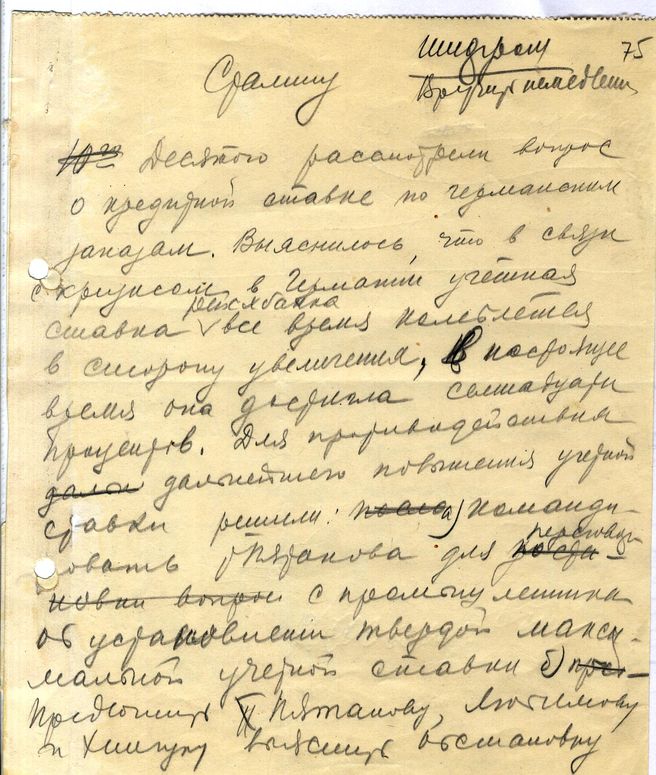 шифром 75
Сталину Вручить немедленно
10го Десятого рассмотрели вопрос
о кредитной ставке по германским
заказам. Выяснилось, что в связи
с кризисом в Германии учетная
рейхсбанка
ставка все время колеблется
в сторону увеличения, в настоящее
время она достигла
процентов. Для противодействия
дальн дальнейшего повышения учетной
ставки решили: после а) команди-
перегово-
ровать т. Пятакова для поста-
новки вопрос с промышленника
об установлении твердой макси-
мальной учетной ставки б) пред-
Предложить Пятакову, Любимову
и Хинчуку выяснить обстановку